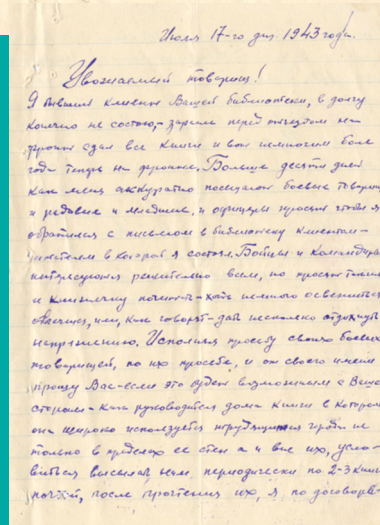 Июля 17-го дня 1943 года.
Уважаемый товарищ!
Я бывший клиент Вашей библиотеки, в долгу
конечно не состою,- заранее перед отъездом на
фронт сдал все книги и вот немногим более
года теперь на фронте. Больше десяти дней
как меня аккуратно посещают боевые товарищи
и рядовые и младшие, и офицеры просят чтоб я
обратился с письмом в библиотеку клиентом-
читателем в которой я состоял. Бойцы и командиры
интересуются решительно всем, но просят также
и книжечку почитать- хоть немного освежиться
или, как говорят- дать несколько отдохнуть
напряжению. Исполняя просьбу своих боевых
товарищей, по их просьбе, и от своего имени
прошу Вас- если это будет возможным с Вашей
стороны- как руководителя дома книги в котором
она широко используется трудящимися города не
только в пределах ее стен а и вне их, усло-
виться высылать нам, периодически по 2-3 книги
почтой, после прочтения их, я, по договорен-